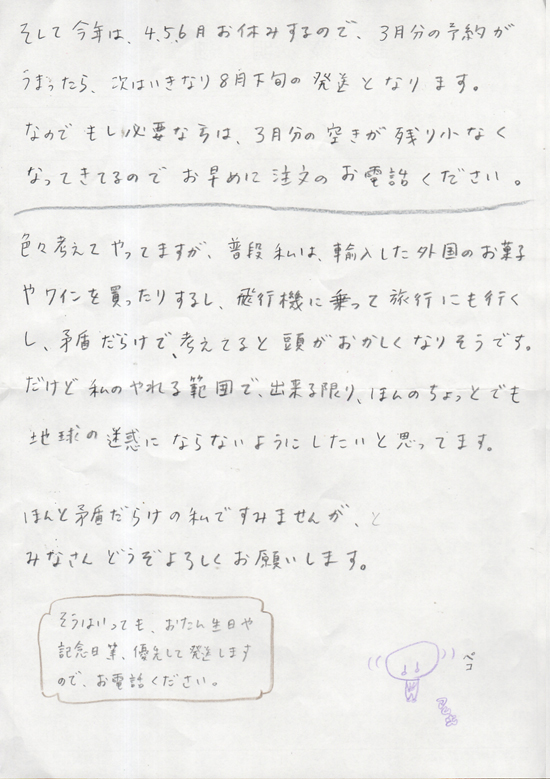 そして今年は、4.5.6月お休みするので、3月分の予約が
うまったら、次はいきなり8月下旬の発送となります。
なのでもし必要な方は、3月分の空きが残り少なく
なってきてるのでお早めに注文のお電話ください。
色々考えてやってますが、普段私は、輸入した外国のお菓子
やワインを買ったりするし、飛行機に乗って旅行にも行く
し、矛盾だらけで、考えてると頭がおかしくなりそうです。
だけど私のやれる範囲で、出来る限り、ほんのちょっとでも
地球の迷惑にならないようにしたいと思ってます。
ほんと矛盾だらけの私ですみませんが、と
みなさんどうぞよろしくお願いします。
そうはいっても、おたん生日や
記念日等、優先して発送します
ので、お電話ください。
ペコ